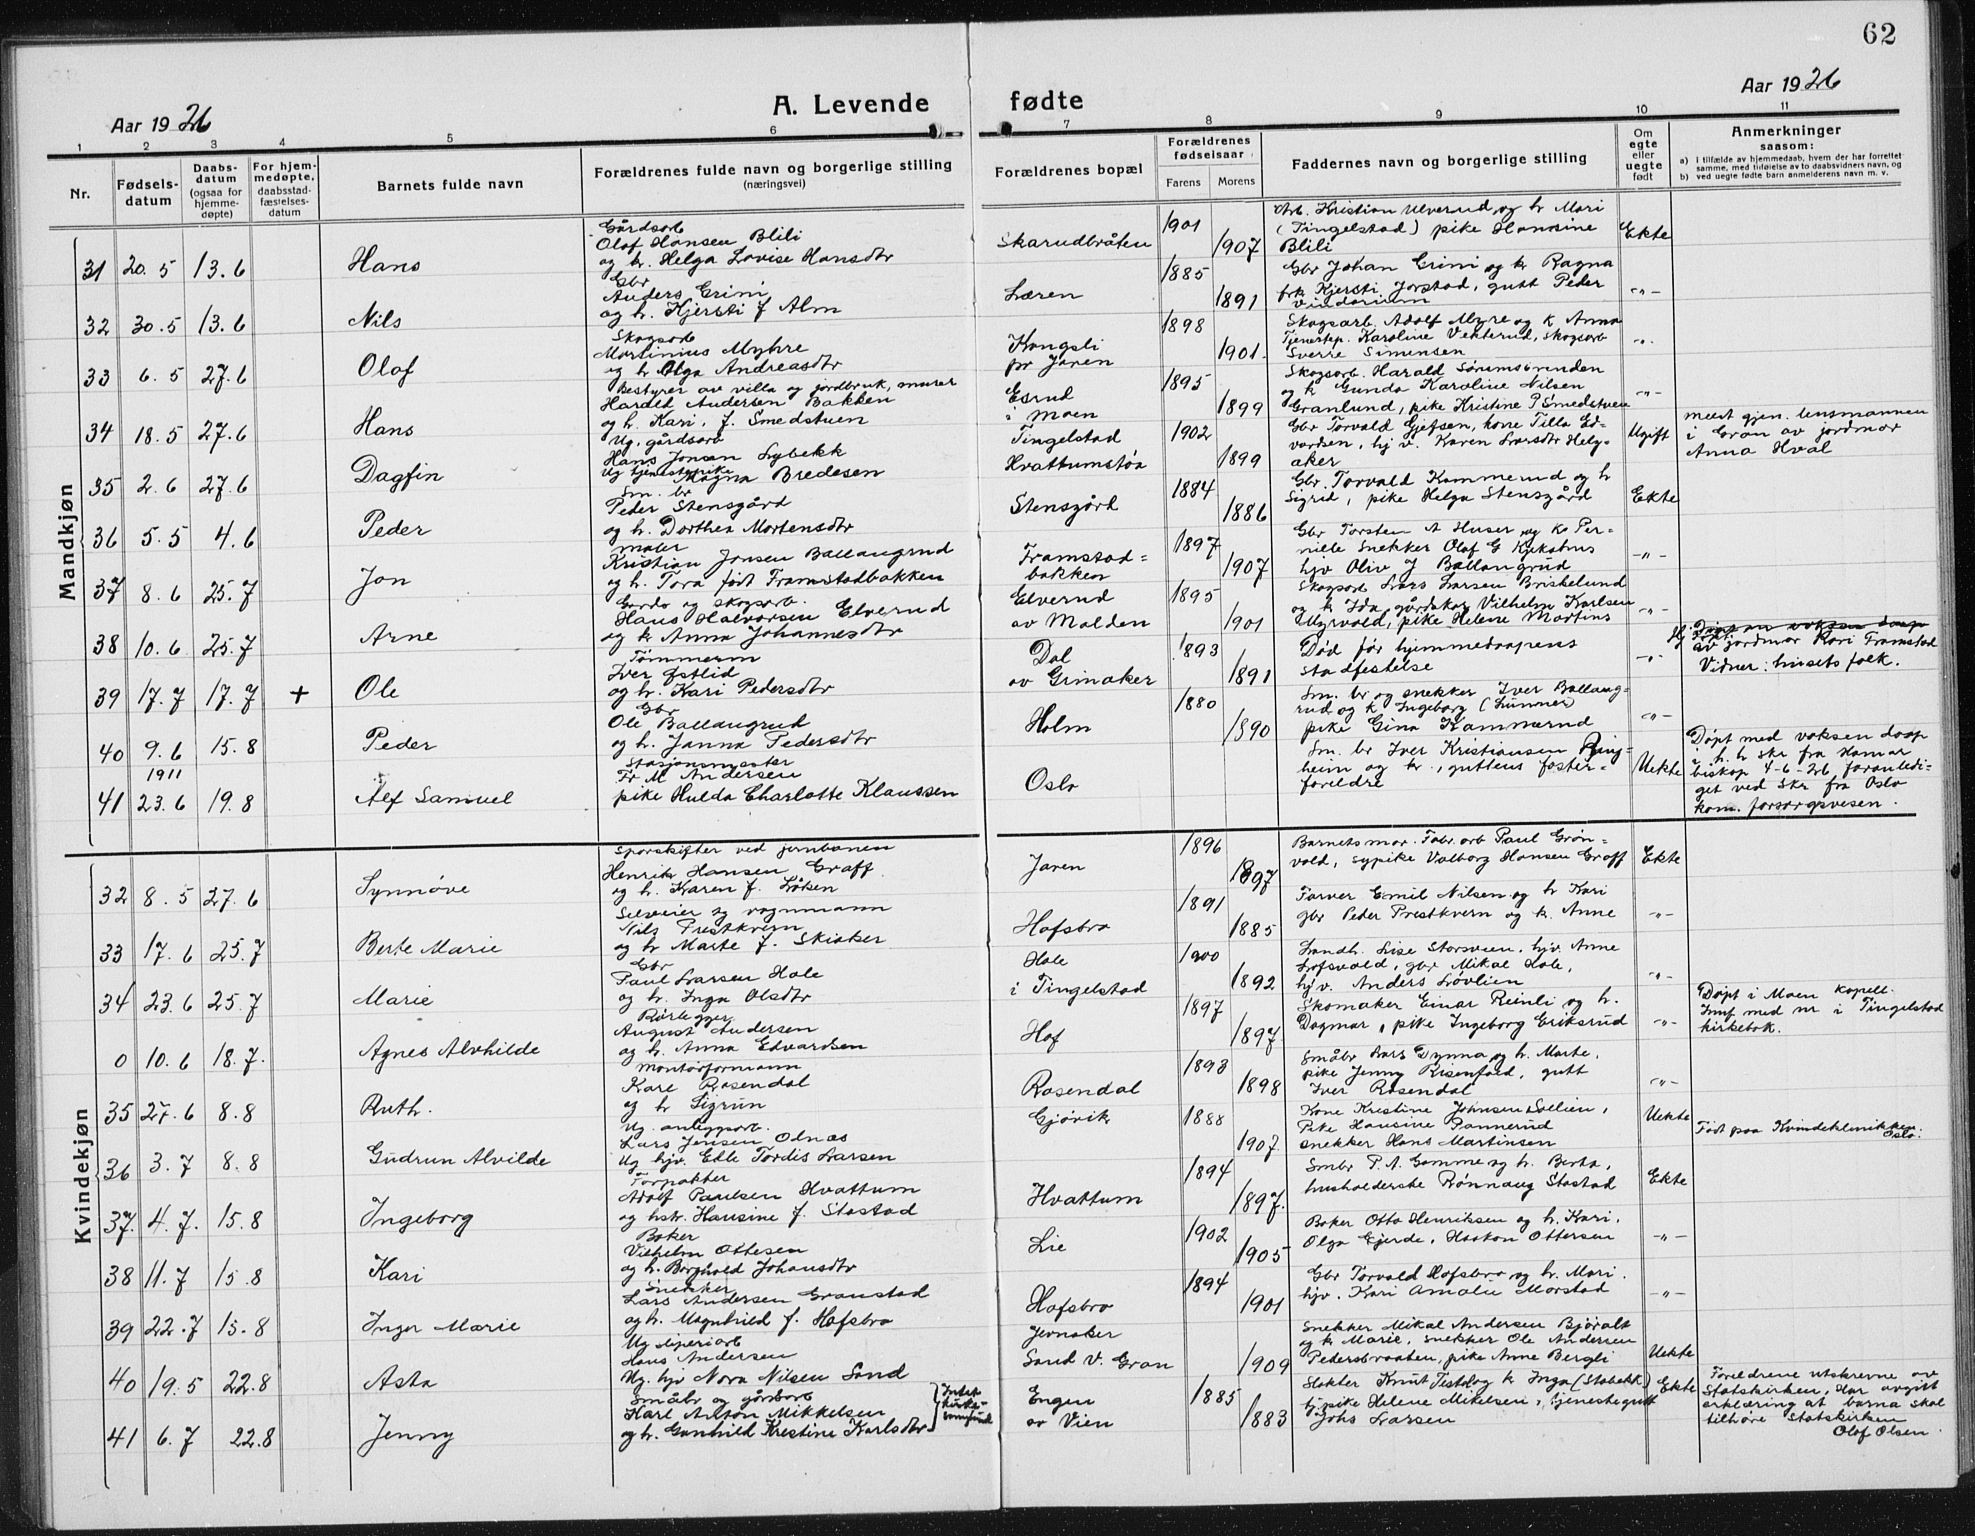 62
Aar 1926
A. Levende fødte
Aar 1926
1 2 3 4 5 6 7 8 9 10 11
Nr.
Fødsels-
datum
Daabs-
datum
(ogsaa for
hjemme-
døpte)
For hjem-
medøpte,
daabsstad-
fæstelses-
datum
Barnets fulde navn
Forældrenes fulde navn og borgerlige stilling
(næringsvei)
Forældrenes bopæl
Forældrenes
fødselsaar
Farens Morens
Faddernes navn og borgerlige stilling
Om
egte
eller
uegte
født
Anmerkninger
saasom:
a) i tilfælde av hjemmedaab, hvem der har forrettet
samme, med tilføielse av to daabsvidners navn, og
b) ved uegte fødte barn anmelderens navn m. v.
Mandkjøn
31 20.5 13.6 Hans
Gårdsarb
Olaf Hansen Blili
og k. Helga Lovise Hansdtr
Skarudbråten 1901 1907
Arb. Kristian Ulverud og k Mari
(Tingelstad) pike Hansine
Blili
Ekte
32 30.5 13.6 Nils
Gbr
Anders Grini
og h. Kjersti f Alm
Læren 1885 1891
Gbr Johan Grini og k Ragna
frk Kjersti Jorstad, gutt Peder
-"-
33 6.5 27.6 Olaf
Skogsarb
Martinius Myhre
og h Olga Andreasdtr
Kongsli
pr Jaren 1898 1901
Skogsarb. Adolf Myre og k Anna
Tjenestep. Karoline Vekterud, skogsarb
Sverre Simensen
-"-
34 18.5 27.6 Hans
Bestyrer av villa og jordbruk, murer
Harald Andersen Bakken
og h. Kari, f. Smedstuen
Esrud
i Moen 1895 1899
Skogsarb. Harald Sørumsrenden
og k Gunda Karoline Nilsen
Granlund, pike Kristine P Smedstuen
-"-
35 2.6 27.6 Dagfin
Ug. gårdsarb
Hans Jonsen Lybekk
Ug tjenestepike
Magna Bredesen
Tingelstad
Hvattumstøa 1902 1899
Gbr Torvald Gjefsen, kone Tilla Ed-
vardsen, hj v. Karen Larsdtr Helg-
aker
Ugift
meldt gjen. lensmannen
i Gran av jordmor
Anna Hval
36 5.5 4.6 Peder
Sm. br
Peder Stensgård
og h. Dorthea Mortensdtr
Stensgård 1884 1886
Gbr. Torvald Kammerud og h
Sigrid, pike Helga Stensgård
Ekte
37 8.6 25.7 Jon
maler
Kristian Jonsen Ballangrud
og h. Tora født Framstadbakken
Framstad=
bakken 1897 1907
Gbr Torsten A Huser og k Per-
nille snekker Olaf G
hjv Oliv J Ballangrud
-"-
38 10.6 25.7 Arne
Gards og skogsarb.
Hans Halvorsen Elverud
og k Anna Johannesdtr
Elverud
av Molden 1895 1901
Skogsarb Lars Larsen Briskelund
og k Ida, gårdskar Vilhelm Karlsen
Myrvold, pike Helene Martins
-"-
39 17.7 17.7 + Ole
Tømmerm
Iver Østlid
og h. Kari Pedersdtr
Dal
av Grinaker 1893 1891
Død før hjemmedaapens
stadfestelse
-"-
av jordmor Kari Framstad
Vidner: husets folk.
40 9.6 15.8 Peder
Gbr
Ole Ballangrud
og h. Janna Pedersdtr
Holm 1880 1890
Sm. br og snekker Iver Ballang=
rud og k Ingeborg (Lunner)
pike Gina Kammerud
-"-
41 1911 23.6 19.8 Alf Samuel
Stasjonsmester
Fr M Andersen
pike Hulda Charlotte Klaussen
Oslo
Sm. br Iver Kristiansen Ring=
heim og k., guttens foster=
foreldre
Uekte
Døpt med voksen daap
i h. h skr fra Hamar
biskop 4-6-26 foranledi-
get ved skr fra Oslo
kom. forsorgsvesen.
Kvindekjøn
32 8.5 27.6 Synnøve
Sporskifter ved jernbanen
Henrik Hansen Graff
og h. Karen f. Løken
Jaren 1896 1897
Barnets mor. Fabr. arb Paul Grøn-
vold, sypike Valborg Hansen Graff
Ekte
33 17.6 25.7 Berte Marie
Selveier og vognmann
Nils Prestkvern
og h Marte f. Skiaker
Hofsbro 1891 1885
Farver Emil Nilsen og h Kari
gbr Peder Prestkvern og k. Anne
-"-
34 23.6 25.7 Marie
Gbr
Paul Larsen Hole
og h. Inga Olsdtr
Hole
i Tingelstad 1900 1892
Landh. Lise Storsveen, hjv. Anne
Lofsvold, gbr Mikal Hole,
hjv. Anders Løvlien
-"-
0 10.6 18.7. Agnes Alvhilde
Rørlegger
August Andersen
og h. Anna Edvardsen
Hof 1897 1897
Skomaker Einar Reinli og h.
Dagmar, pike Ingeborg Eriksrud
-"-
Døpt i Moen kapell.
Innf med nr i Tingelstad
kirkebok.
35 27.6 8.8 Ruth.
Montørformann
Kare Rosendal
og h Sigrun
Rosendal 1893 1898
Småbr Lars Dynna og h. Marte,
pike Jenny Risenfald, gutt
Iver Rosendal
-"-
36 3.7 8.8 Gudrun Alvilde
Ug. anleggsarb.
Lars Jensen Odnæs
Ug hjv. Elle Tordis Larsen
Gjøvik 1888 1907
Kone Kristine Johnsen Sollien,
Pike Hansine Rannerud
snekker Hans Martinsen
Uekte
Født paa Kvindeklinikken
Oslo.
37. 4.7. 15.8 Ingeborg
Forpakter
Adolf Paulsen Hvattum
og hstr. Hansine f. Stastad
Hvattum 1894 1897.
Smbr P. A. Gamme og h. Berta,
husholderske Rønnaug Stastad
Ekte
38 11.7 15.8 Kari
Baker
Vilhelm Ottesen
og h. Borghild Johansdtr
Lie 1902 1905
Baker Otto Henriksen og h. Kari,
Olga Gjerde, Haakon Ottersen
-"-
39 22.7 15.8 Inger Marie
Snekker
Lars Andersen Granstad
og h. Magnhild f. Hofsbro
Hofsbro 1894 1901
Gbr Torvald Hofsbro og h. Mari.
hjv. Kari Amalie Morstad
-"-
40 19.5 22.8 Asta
Ug sliperiarb
Hans Andersen
Ug. hjv Nora Nilsen Sand
Jevnaker
Sand v. Gran 1909
Snekker Mikal Andersen Bjøralt
og k Marie, snekker Ole Andersen
Pedersbraaten, pike Anne Bergli
Uekte
41 6.7 22.8 Jenny
Småbr og gårdsarb
Karl Anton Mikkelsen
og h. Gunhild Kristine Karlsdtr
Intet
kirke-
samfund
Engen
av Vien 1885 1883
og k Inga (Stabekk)
tj. pike Helene Mikelsen, tjenestegutt
Johs Larsen
Ekte
Foreldrene utskrevne av
Statskirken, har avgitt
erklæring at barna skal
tilhøre Statskirken
Olaf Olsen.